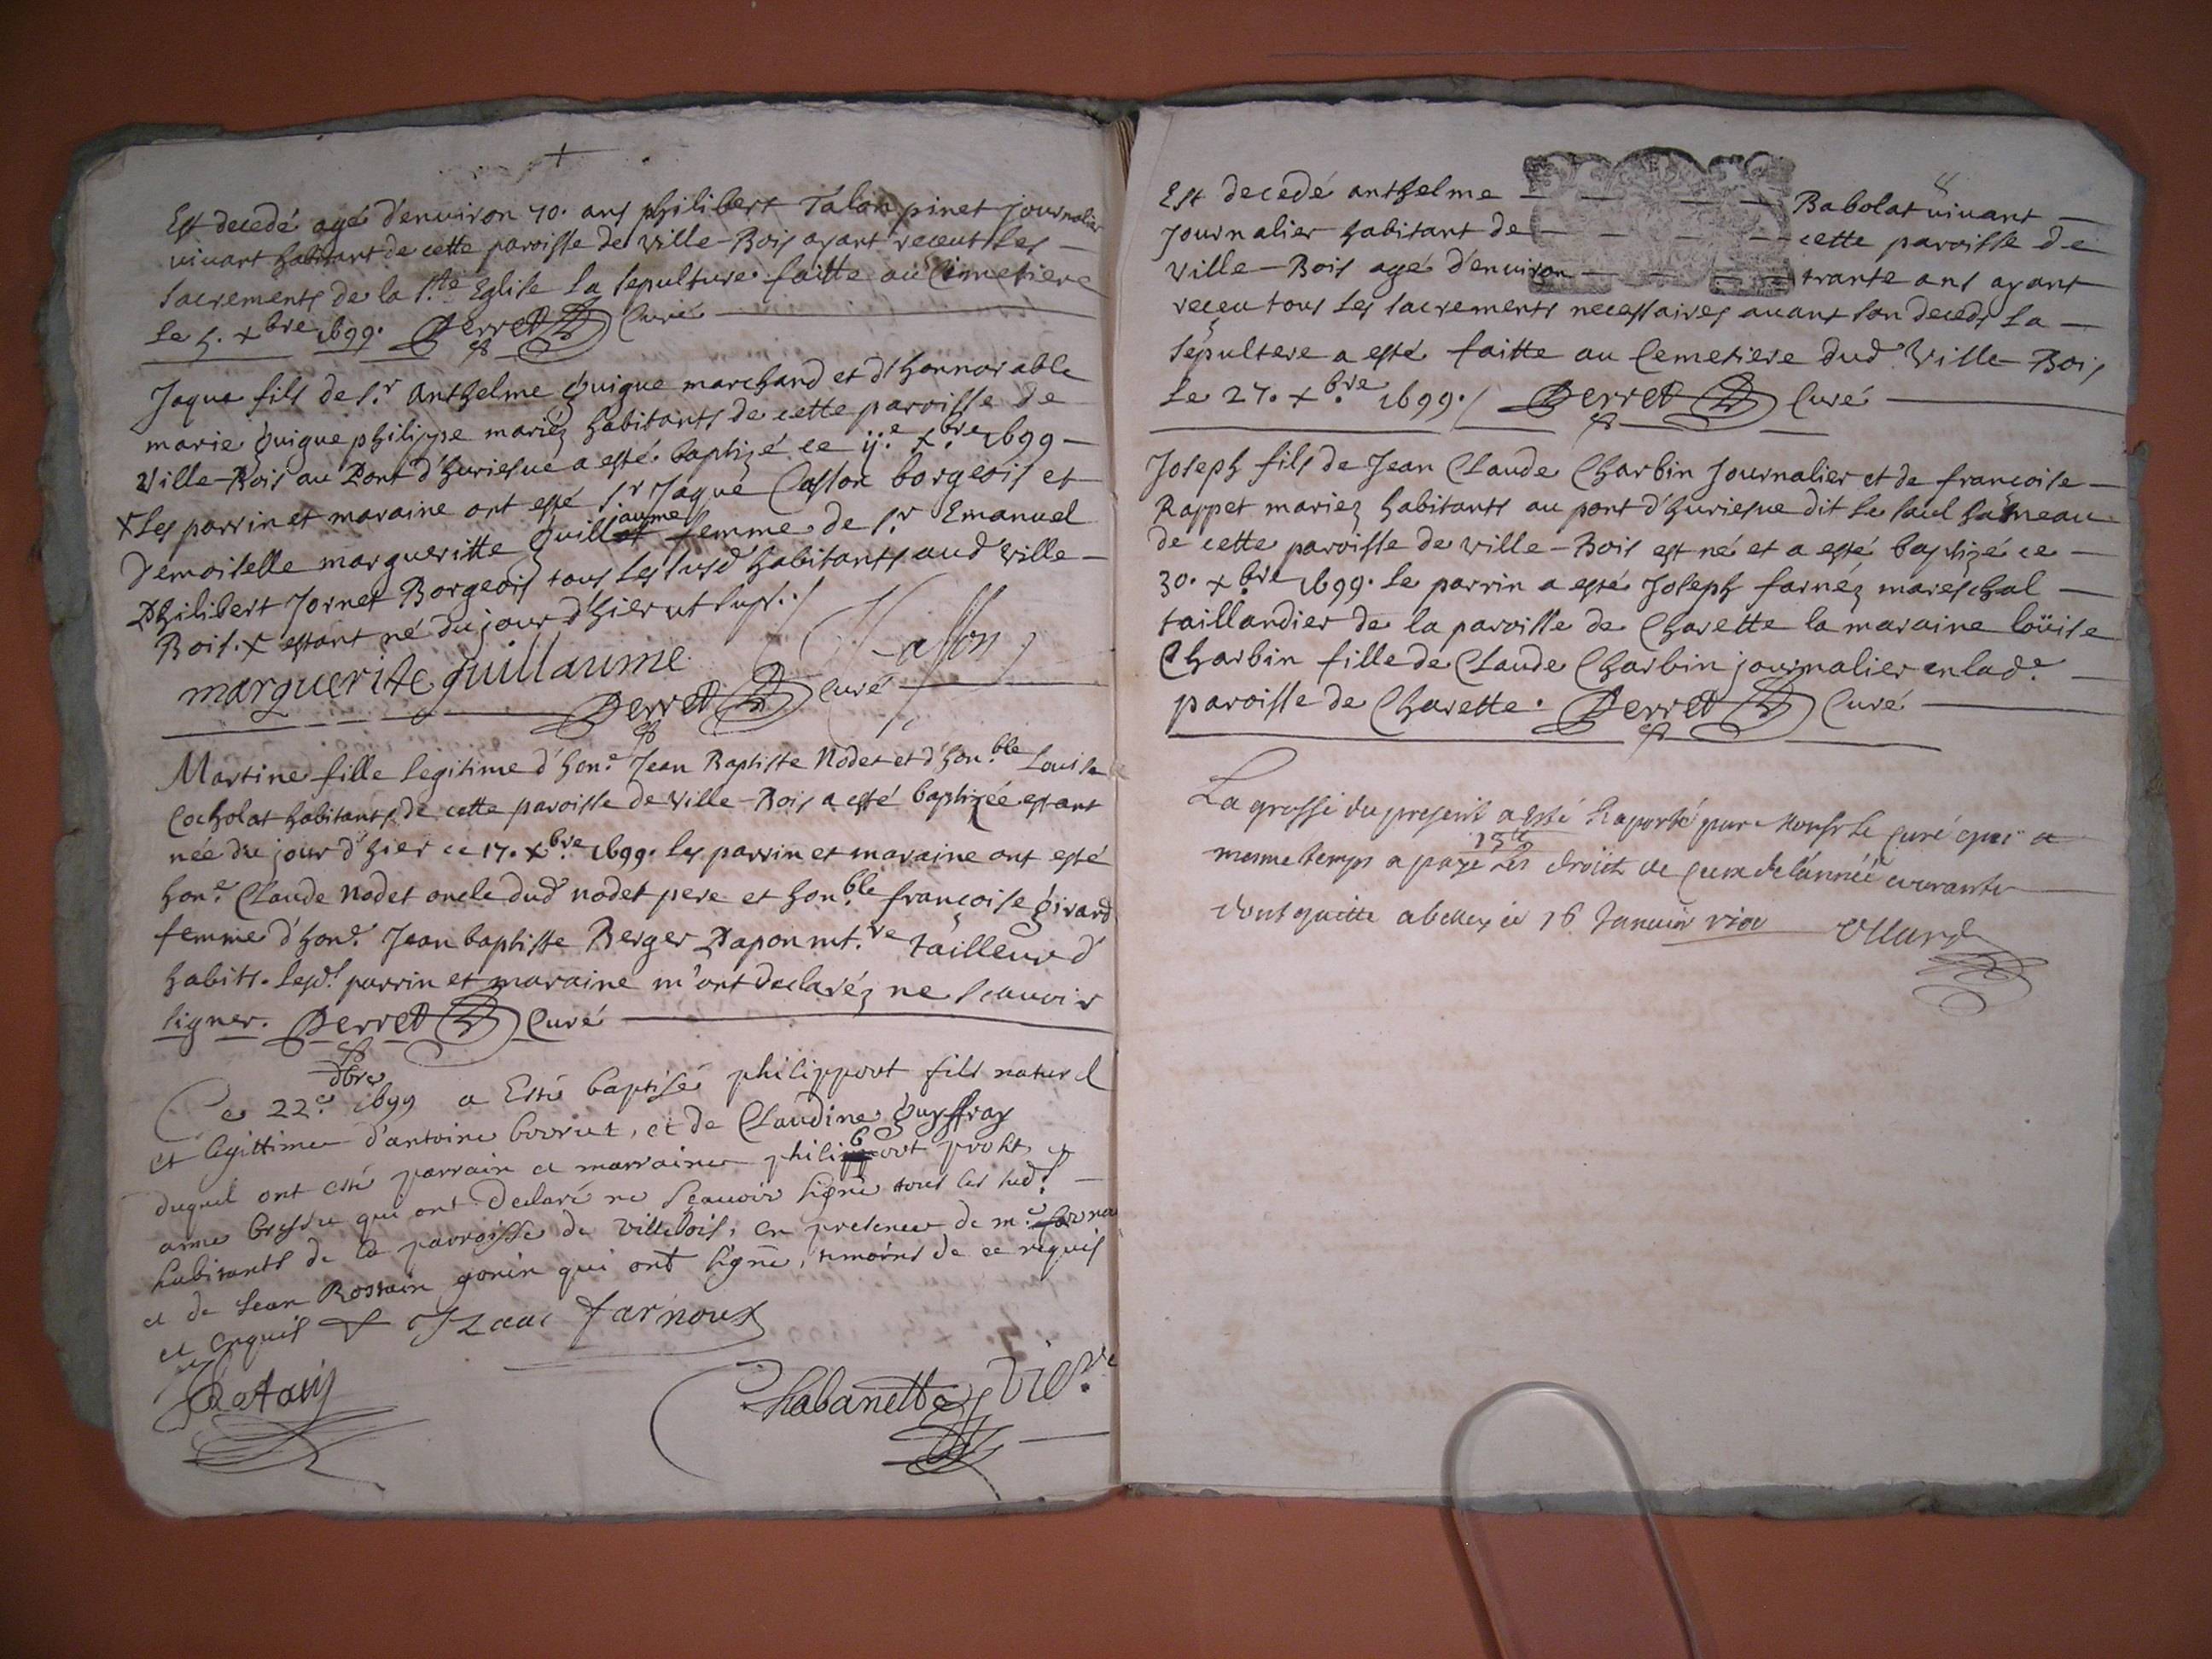 Est decedé agé d'enuiron 70. ans philibert Talon pinet journalier
viuant habitant de cette paroisse de ville-Bois ayant receut les
sacrements de la Ste Eglise la sepulture faitte au Cimetiere
le 5. xbre 1699. Perret Curé
Jaque fils de sr Anthelme guigue marchand et d'honnorable
marie guigue philippe mariez habitants de cette paroisse de
Ville-Bois au Pont d'huriesue a esté baptizé ce ij.e xbre 1699
x les parrin et maraine ont esté sr Jaque Caston borgeois et
Demoiselle margueritte guillaume femme de sr Emanuel
Philibert Jornet Borgeois tous les susd habitants aud ville-
Bois. x estant né du jour d'hier ut supr.
marguerite guillaume Caston
Perret Curé
Martine fille legitime d'hon.e Jean Baptiste Nodet et d'hon.ble Louise
Cocholat habitants de cette paroisse de Ville-Bois a esté baptizée estant
née du jour d'hier ce 17. xbre 1699. les parrin et maraine ont esté
hon.e Claude Nodet oncle dud nodet pere et hon.ble françoise girard
femme d'hon.e Jean baptiste Berger Dapon mt.re tailleur d'
habits. lesd. parrin et maraine m'ont declaréz ne scauoir
signer. Perret Curé
Ce 22.e xbre 1699 a Esté baptisé philippert fils naturel
et legittime d'antoine bovriet, et de Claudine guyffray
duquel ont esté parrain et marraine philibert prost et
anne bressie qui ont declaré ne sçauoir signé tous les sud.
habitants de la parroisse de villebois, en presence de m.e
et de Jean Rostain gonin qui ont signé, temoins de ce requis
et enquis Izaac farnoux
Rotain Chabanette vic.re
Est decedé anthelme Babolat viuant
journalier habitant de cette paroisse de
Ville-Bois agé d'enuiron trante ans ayant
receu tous les sacrements necessaires auant son deceds la
sépultere a esté faitte au Cemetiere dud Ville-Bois
le 27. xbre 1699. Perret Curé
Joseph fils de Jean Claude Charbin Journalier et de francoise
Rappet mariez habitants au pont d'huriesue dit le saul hameau
de cette paroisse de ville-Bois est né et a esté baptizé ce
30. xbre 1699. le parrin a esté Joseph farnéz mareschal
taillandier de la paroisse de Charette la maraine loüise
Charbin fille de Claude Charbin journalier en lad.e
paroisse de Charette. Perret Curé
La grosse du present a esté Raporté par Monsr le curé qui a
mesme temps a paye les droit de de l'année courante
dont quitte a belley ce 16 Januier 1700